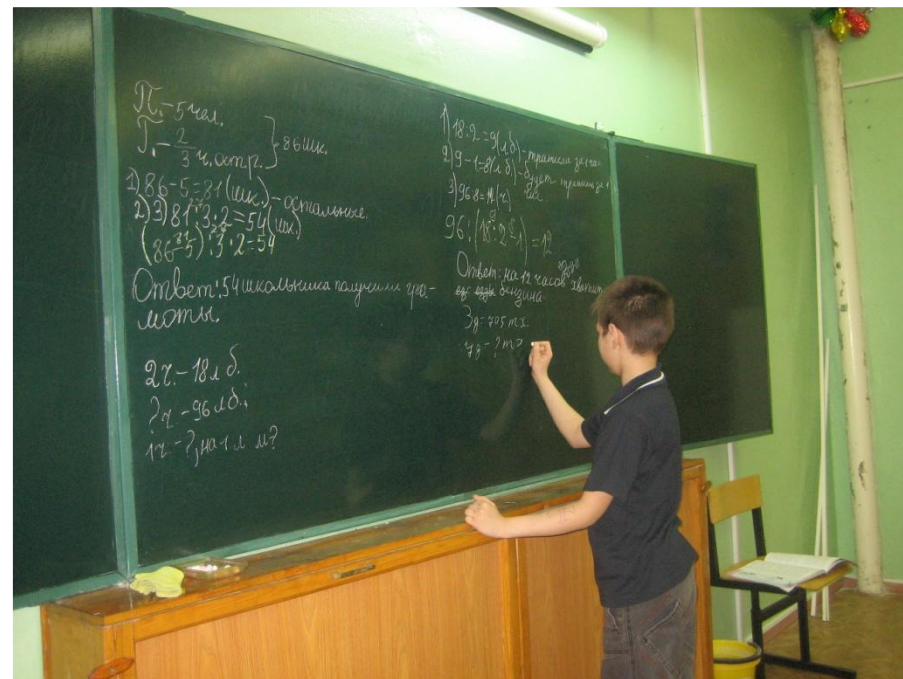 П. - 5 чел.
Г. - 2/3 ч. остр. } 86 шк.
1) 86-5=81 (шк.) - остальные.
2) 3) 81:3·2=54 (шк.)
(86-5):3·2=54
Ответ: 54 школьника получили гра-
моты.
2ч. - 18л б.
?ч - 96л б.;
1ч - ?, на 1 л м?
1) 18:2=9(л.б) - тратили за 1 час
2) 9-1=8(л.б) - будет тратить за 1
час
3) 96:8=12(ч.)
96:(18:2-1)=12
Ответ: на 12 часов хватит
бензина.
3д = 705 т х.
7д - ? т